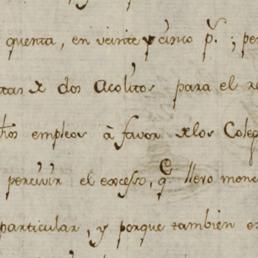 quenta, en veinte y cinco p.s; pe
tas x dos Acolitos para el r
hos empleos à favor xlos Coleg
percivir el excesso, q.e llero mone
particular, y porque tambien e